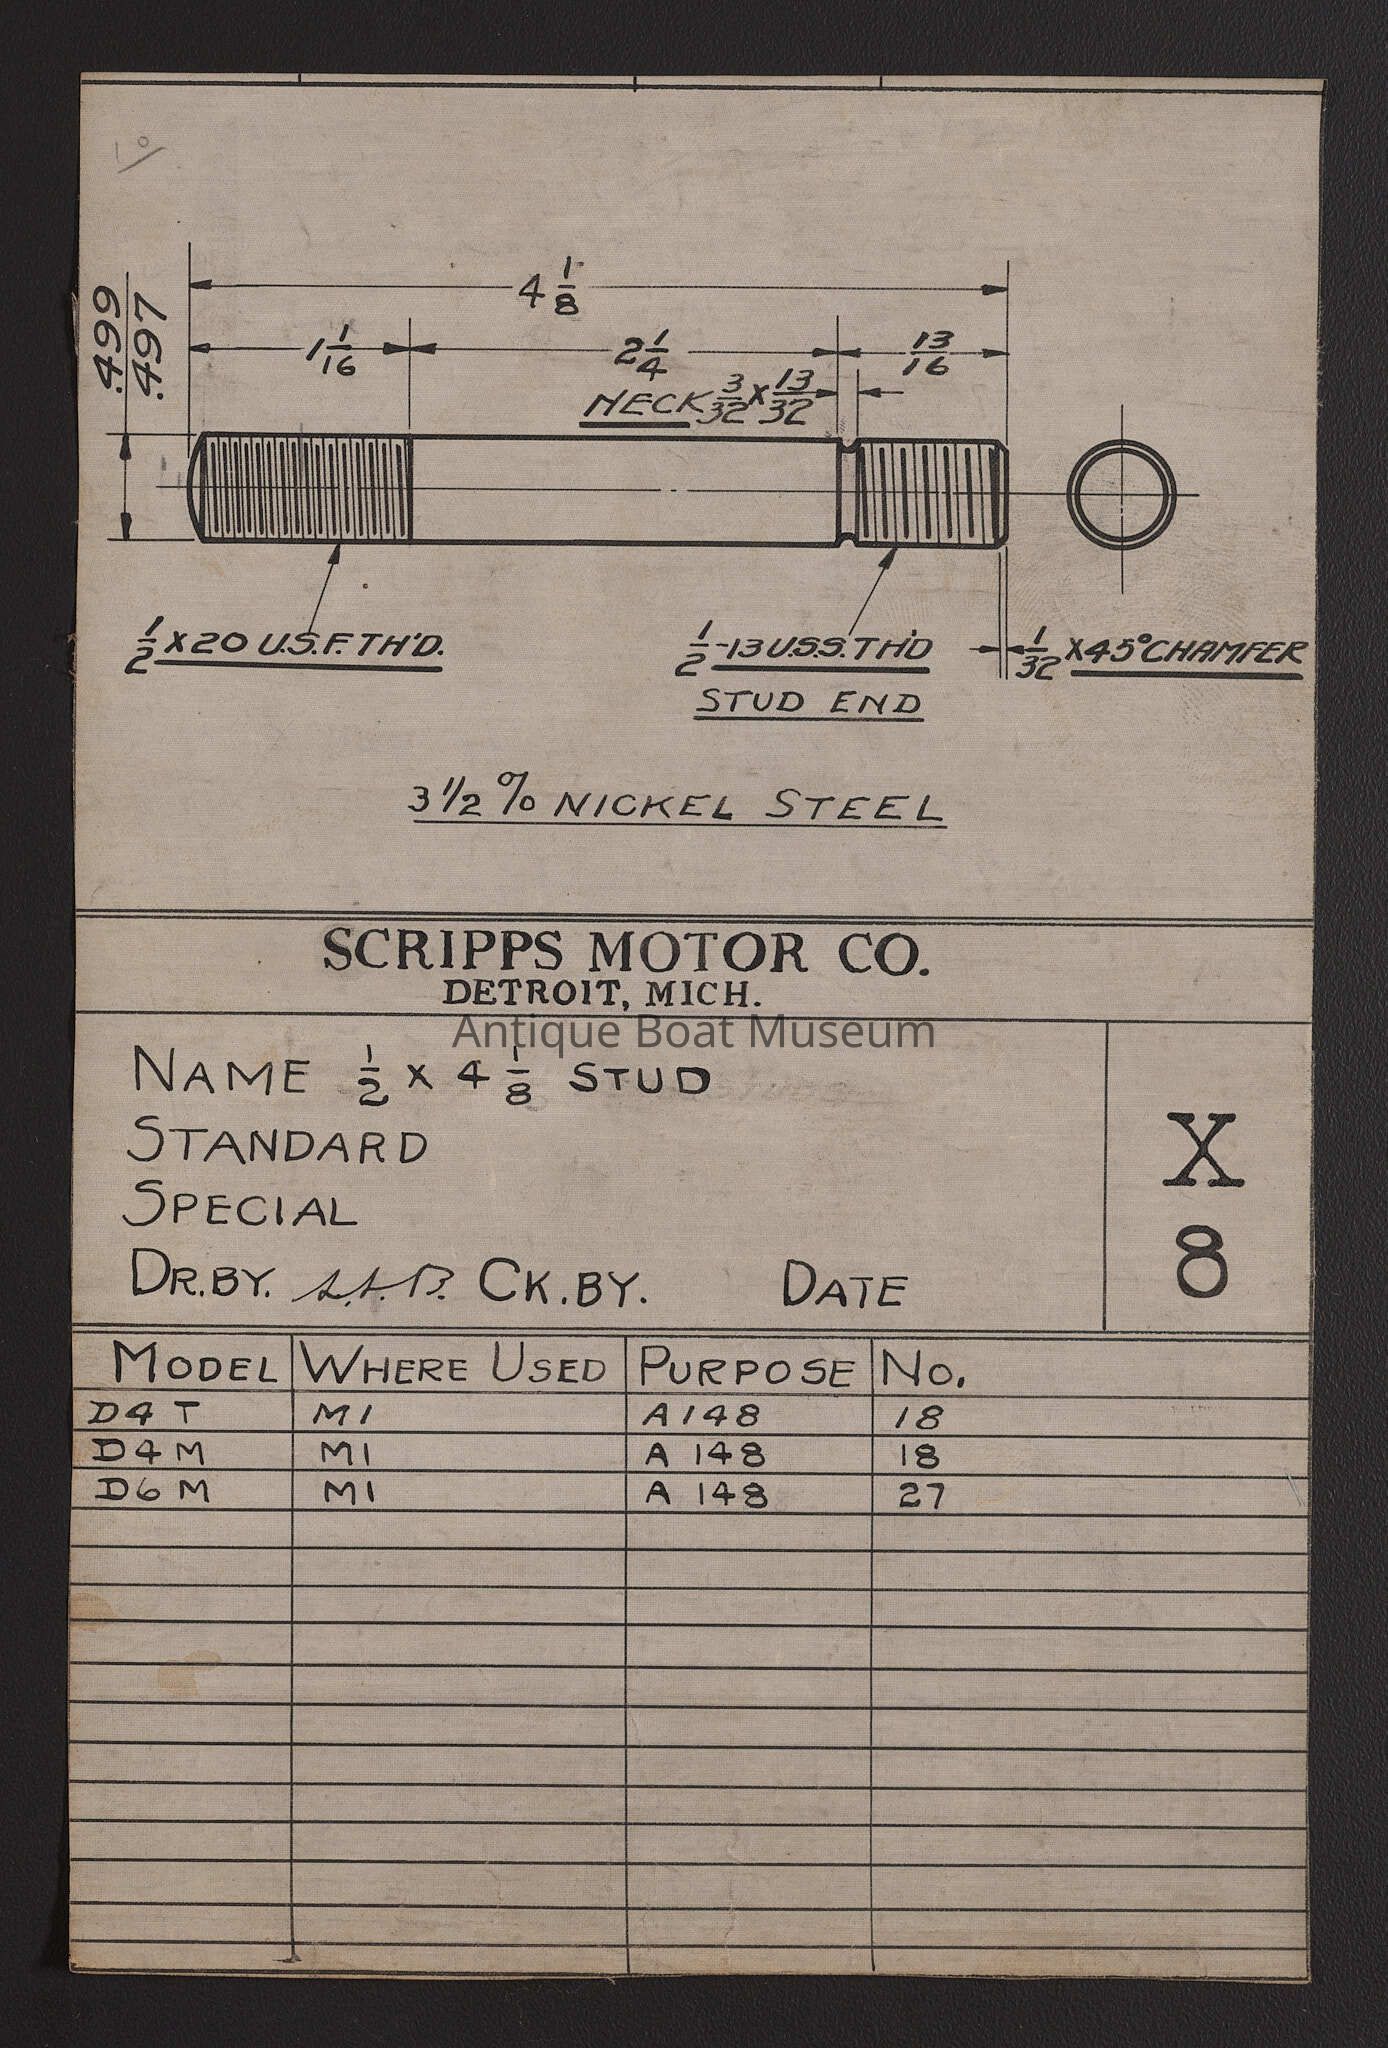 10
4 1/8
.499
.497
1 1/16
2 1/4
13/16
NECK 3/32 X 13/32
1/2 X 20 U.S.F. TH'D.
1/2-13 U.S.S. TH'D
STUD END
1/32 X 45° CHAMFER
3 1/2 % NICKEL STEEL
SCRIPPS MOTOR CO.
DETROIT, MICH.
Antique Boat Museum
NAME 1/2 X 4 1/8 STUD
STANDARD
SPECIAL
X
8
DR.BY. CK.BY. DATE
MODEL WHERE USED PURPOSE NO.
D4 T M1 A148 18
D4 M M1 A 148 18
D6 M M1 A 148 27